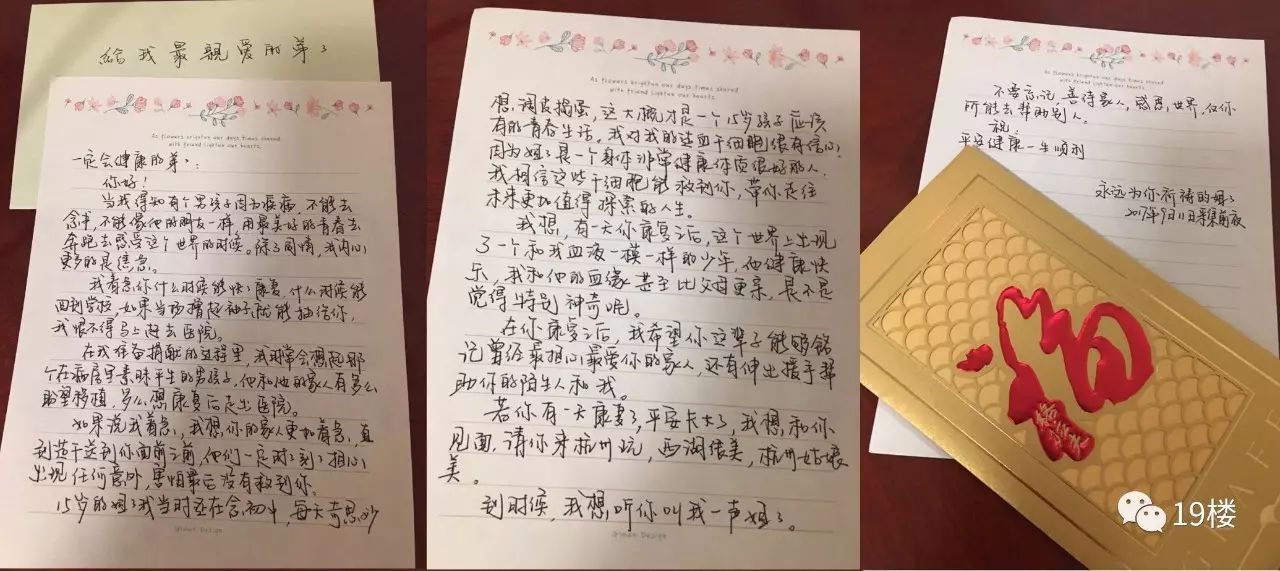 给我最親爱的弟弟
As flowers brighten our days, times shared
with friend lighten our hearts.
一定会健康的弟弟：
你好！
当我得知有个男孩子因为疾病，不能去
念书，不能像他的朋友一样，用最美好的青春去
奔跑去感受这个世界的时候。除了同情，我内心
更多的是焦急。
我着急你什么时候能快快康复，什么时候能
回到学校，如果当场撸起袖子就能抽给你，
我恨不得马上赶去医院。
在我准备捐献的过程里，我时常会想起那
个在病房里素昧平生的男孩子，他和他的家人有多么
盼望移植，多么想康复后走出医院。
如果说我着急，我想你的家人更加着急，直
到干送到你面前之前，他们一定时时刻刻担心
出现任何意外，害怕最后没有救到你。
15岁的姐姐我当时还在念初中，每天奇思妙
@iMan Design
As flowers brighten our days, times shared
with friend lighten our hearts.
想，调皮捣蛋，这大概才是一个15岁孩子应该
有的青春生活。我对我的造血干细胞很有信心，
因为姐姐是一个身体非常健康体质很好的人，
我相信这些干细胞能救到你，带你走往
未来更加值得探索的人生。
我想，有一天你康复之后，这个世界上出现
了一个和我血液一模一样的少年，他健康快
乐，我和他的血缘甚至比父母更亲，是不是
觉得特别神奇呢。
在你康复之后，我希望你这辈子能够铭
记曾经最担心最爱你的家人，还有伸出援手帮
助你的陌生人和我。
若你有一天康复了，平安长大了，我想和你
见面，请你来杭州玩，西湖很美，杭州姑娘很
美。
到时候，我想听你叫我一声姐姐。
@iMan Design
As flowers brighten our days, times shared
with friend lighten our hearts.
不要忘记，善待家人，感恩世界，尽你
所能去帮助别人。
祝：
平安健康一生顺利
永远为你祈祷的姐姐
2017年9月11日采集前夜
福
19楼